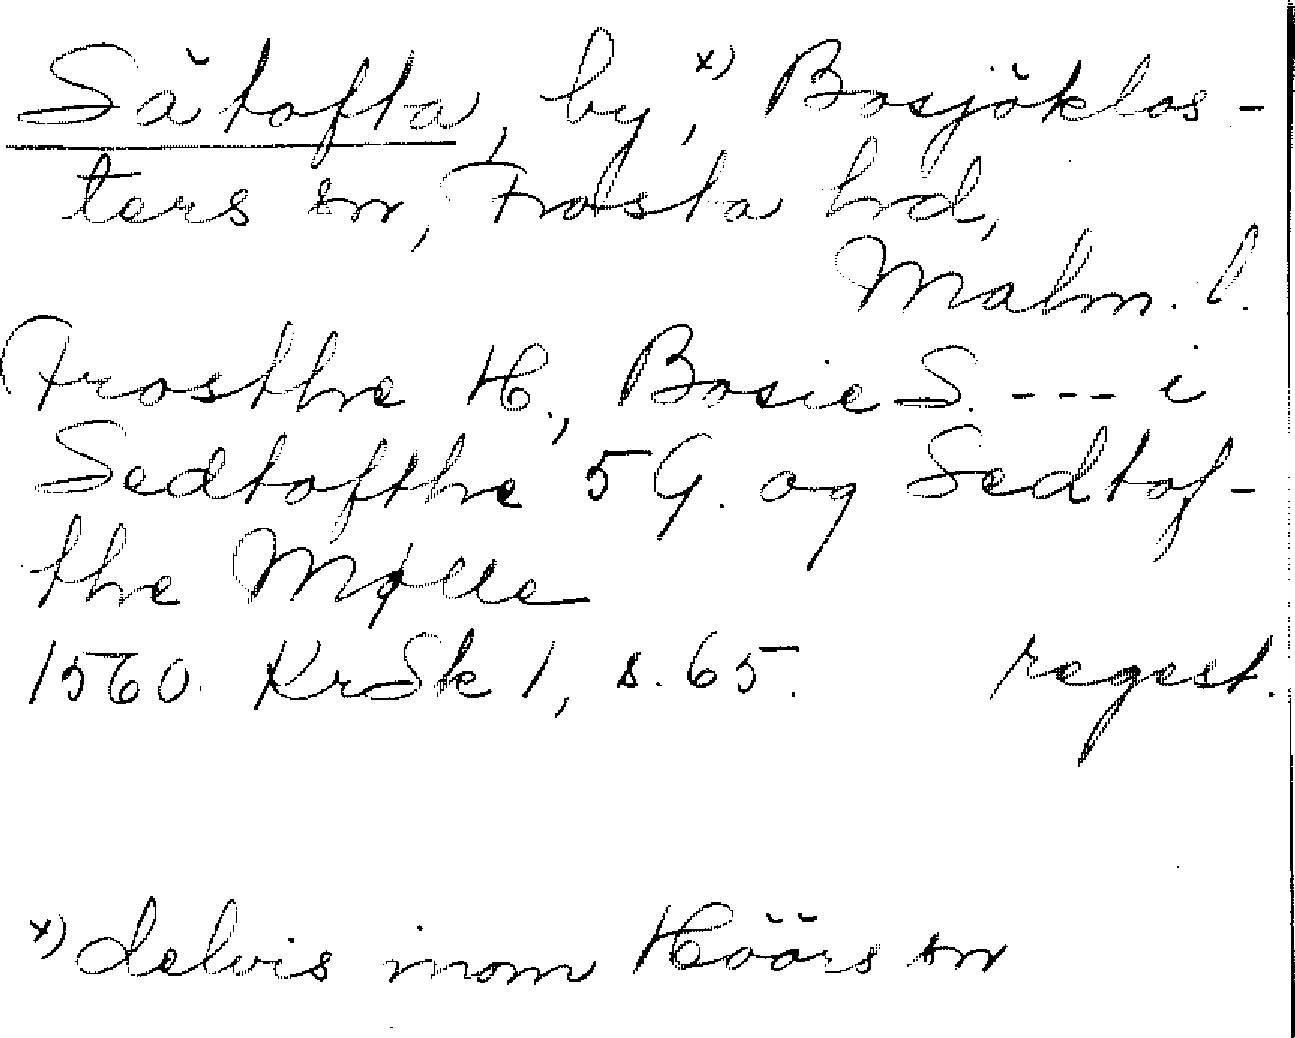 Sätofta, by, x) Bosjöklos-
ters sn, Frosta hd,
Malm. l.
Frosthe H., Bosie S. --- i
Sedtofthe 5 G. og Sedtof-
the Mølle
1560. KrSk 1, s. 65. regest.
x) delvis inom Höörs sn